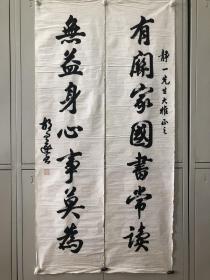 静一先生大雅正之
有關家國書常讀
無益身心事莫為